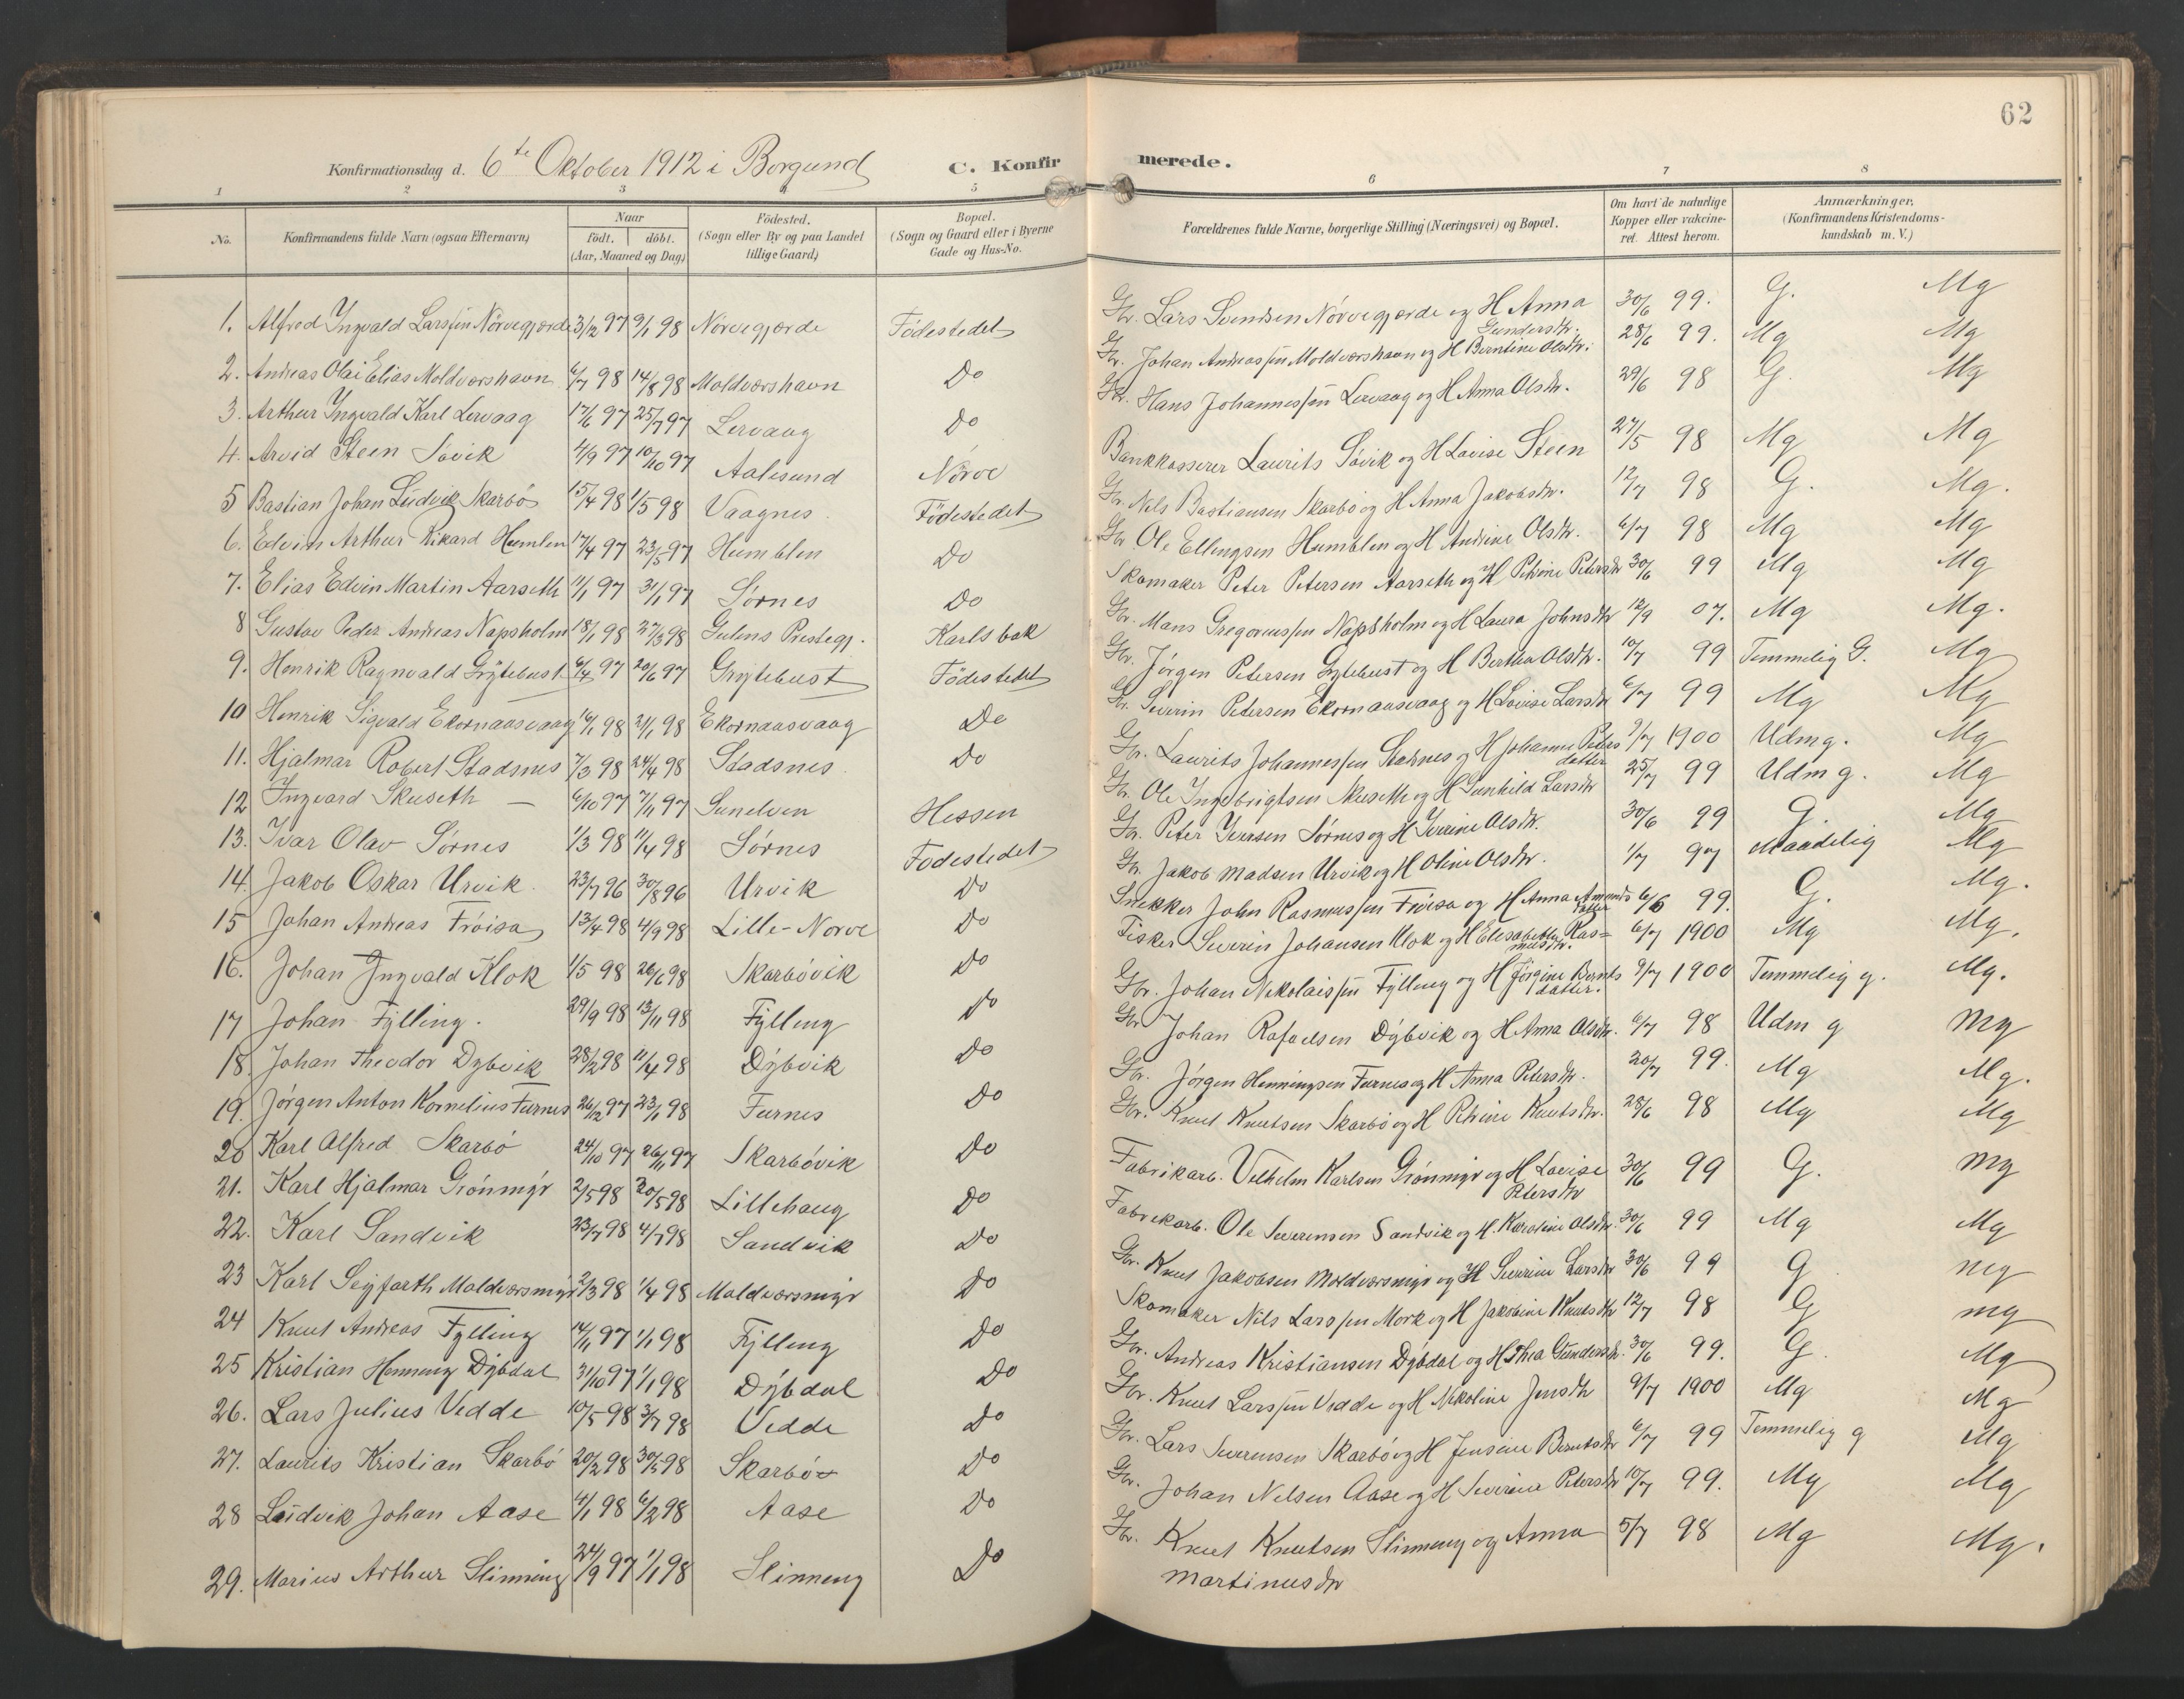 62
Konfirmationsdag d. 6te Oktober 1912 i Borgund C. Konfirmerede.
1 2 3 4 5 6 7 8
No. Konfirmandens fulde Navn (ogsaa Efternavn) Naar født. døbt. (Aar, Maaned og Dag) Fødested. (Sogn eller By og paa Landet tillige Gaard) Bopæl. (Sogn og Gaard eller i Byerne Gade og Hus-No. Forældrenes fulde Navne, borgerlige Stilling (Næringsvei) og Bopæl. Om havt de naturlige Kopper eller vakcineret. Attest herom. Anmærkninger. (Konfirmandens Kristendomskundskab m. V.)
1. Alfred Ingvald Larssen Nörvegjærde 3/12 97 9/1 98 Nörvegjærde Födestedet Gbr. Lars Svendsen Nörvegjærde og H Anna Gundersdtr. 30/6 99. G. Mg
2. Andreas Olai Elias Moldværshavn 6/7 98 14/8 98 Moldværshavn Do Gbr. Johan Andreassen Moldværshavn og H Berntine Olsdtr. 28/6 99. Mg Mg
3. Arthur Ingvald Karl Lervaag 17/6 97 25/7 97 Lervaag Do Gbr. Hans Johannessen Lervaag og H Anna Olsdtr. 29/6 98 G. Mg
4. Arvid Steen Sövik 4/9 97 10/10 97 Aalesund Nörve Bankkasserer Laurits Sövik og H Lovise Steen 27/5 98 Mg Mg
5 Bastian Johan Ludvik Skarbö 15/4 98 1/5 98 Vaagnes Födestedet Gbr. Nils Bastiansen Skarbö og H Anna Jakobsdtr. 12/7 98 G. Mg.
6. Edvin Arthur Rikard Humlen 17/4 97 23/5 97 Humblen Do Gbr. Ole Ellingsen Humblen og H Andrine Olsdtr. 6/7 98 Mg Mg
7. Elias Edvin Martin Aarseth 11/1 97 31/1 97 Sörnes Do Skomaker Peter Petersen Aarseth og H Petrine Petersdtr 30/6 99 Mg Mg
8 Gustav Peder Andreas Napsholm 18/1 98 27/3 98 Gulens Prestegj. Karlsbak Gbr. Mons Gregoriussen Napsholm og H Laura Johnsdtr 12/9 07. Mg Mg.
9. Henrik Ragnvald Grytebust 6/4 97 20/6 97 Grytebust Födestedet Gbr. Jörgen Petersen Grytebust og H Bertha Olsdtr. 10/7 99 Temmelig G. Mg
10 Henrik Sigvald Ekornaasvaag 16/1 98 21/1 98 Ekornaasvaag Do Gbr. Severin Petersen Ekornaasvaag og H Lovise Larsdtr 6/7 99 Mg Mg
11. Hjalmar Robert Stadsnes 7/3 98 24/4 98 Stadsnes Do Gbr. Laurits Johannessen Stadsnes og H Johanna Petersdatter 9/7 1900 Udmg. Mg
12 Ingvard Skuseth — 6/10 97 7/11 97 Sunelven Hessen Gbr. Ole Ingebrigtsen Skuseth og H Gunhild Larsdtr 25/7 99 Udmg. Mg
13. Ivar Olav Sörnes 1/3 98 11/4 98 Sörnes Födestedet Gbr. Peter Iversen Sörnes og H Iverine Olsdtr. 30/6 99 G. Mg
14. Jakob Oskar Urvik 23/7 96 30/8 96 Urvik Do Gbr. Jakob Madsen Urvik og H Oline Olsdtr. 1/7 97 Maadelig Mg
15 Johan Andreas Fröisa 13/4 98 4/9 98 Lille-Nörve Do Snekker John Rasmussen Fröisa og H Anna Amundsdatter 6/6 99. G. Mg.
16. Johan Ingvald Klok 1/5 98 26/6 98 Skarbövik Do Fisker Severin Johansen Klok og H Elisabeth Rasmusdtr. 6/7 1900 Mg Mg.
17 Johan Fylling. 29/9 98 13/11 98 Fylling Do Gbr. Johan Nikolaissen Fylling og H Jörgine Berntsdatter. 9/7 1900 Temmelig g. Mg.
18. Johan Theodor Dybvik 28/2 98 11/4 98 Dybvik Do Gbr Johan Rafaelsen Dybvik og H Anna Olsdtr. 6/7 98 Udm g Mg
19. Jörgen Anton Kornelius Furnes 26/12 97 23/1 98 Furnes Do Gbr. Jörgen Henningsen Furnes og H Anna Petersdtr. 20/7 99. Mg Mg.
20 Karl Alfred Skarbö 24/10 97 26/11 97 Skarbövik Do Gbr. Knut Knutsen Skarbö og H Petrine Knutsdtr. 28/6 98 Mg Mg
21. Karl Hjalmar Grönmyr 2/5 98 20/5 98 Lillehaug Do Fabrikarb. Vilhelm Karlsen Grönmyr og H Lovise Petersdtr 30/6 99 G. Mg
22. Karl Sandvik 23/7 98 4/7 98 Sandvik Do Fabrikarb. Ole Severinsen Sandvik og H. Karoline Olsdtr. 30/6 99 Mg Mg
23 Karl Seyfarth Moldværsmyr 2/3 98 1/4 98 Moldværsmyr Do Gbr. Knut Jakobsen Moldværsmyr og H Severine Larsdtr 30/6 99 G Mg
24 Knut Andreas Fylling 14/11 97 1/1 98 Fylling Do Skomaker Nils Larssen Mork og H Jakobine Knutsdtr 12/7 98 G Mg
25 Kristian Henning Dybdal 31/10 97 1/1 98 Dybdal Do Gbr. Andreas Kristiansen Dybdal og H Thea Gundersdtr. 30/6 99. G. Mg
26. Lars Julius Vedde 10/5 98 3/7 98 Vedde Do Gbr. Knut Larssen Vedde og H Nikoline Jensdtr 9/7 1900 Mg Mg
27. Laurits Kristian Skarbö 20/2 98 30/5 98 Skarbö Do Gbr. Lars Severinsen Skarbö og H Jensine Berntsdtr 6/7 99 Temmelig g Mg
28 Ludvik Johan Aase 4/1 98 6/2 98 Aase Do Gbr. Johan Nelsen Aase og H Severine Petersdtr 10/7 99. Mg Mg
29. Marius Arthur Slinning 24/9 97 1/1 98 Slinning Do Gbr. Knut Knutsen Slinning og Anna Martinusdtr 5/7 98 Mg Mg.